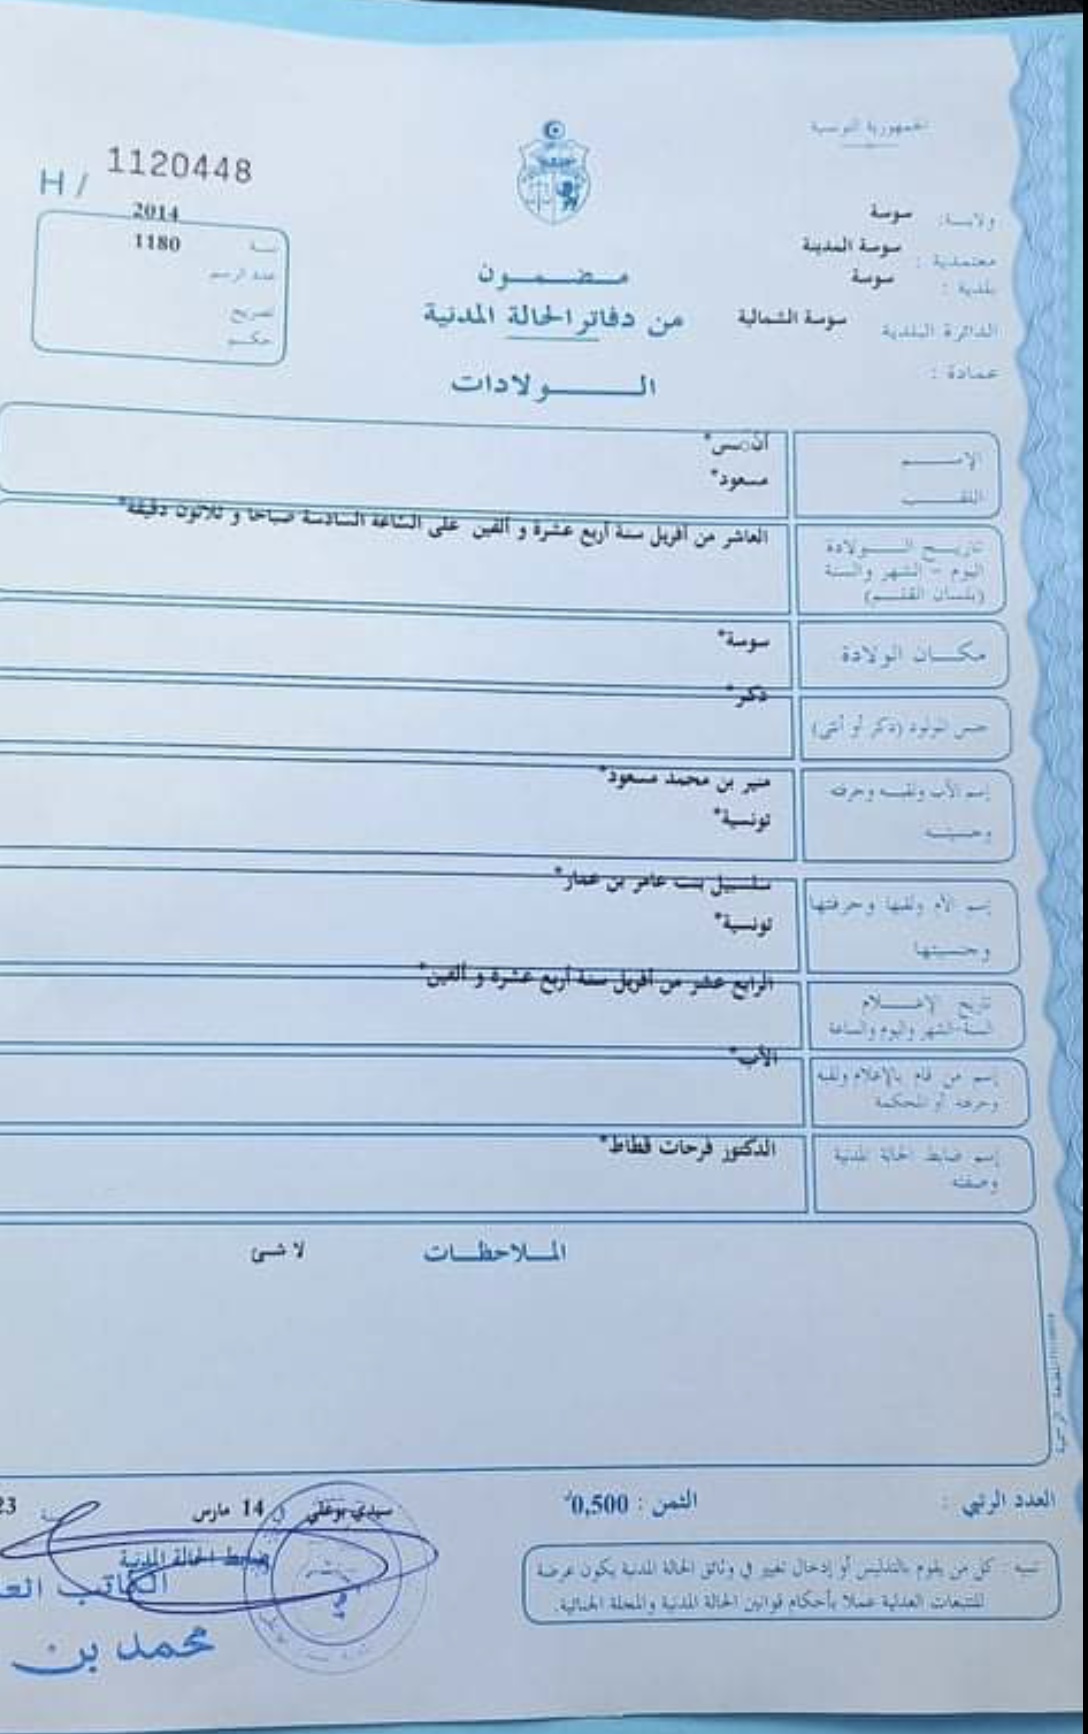 الجمهورية التونسية
H/ 1120448
ولايـة: سوسة
معتمدية : سوسة المدينة
بلدية : سوسة
الدائرة البلدية سوسة الشمالية
عمادة :
2014
سنة 1180
عدد الرسم
تصريح
حكـم
مـضـمـون
من دفاتر الحالة المدنية
الـــولادات
الإســـم أنس*
اللقـــب مسعود*
تاريـــخ الـــولادة
اليوم - الشهر والسنة
(بلسان القلـــم)
العاشر من أفريل سنة أربع عشرة و ألفين على الساعة السادسة صباحا و ثلاثون دقيقة*
مكـــان الولادة سوسة*
جنس المولود (ذكر أو أنثى) ذكر*
إسم الأب ولقبـه وحرفته منير بن محمد مسعود*
وجنسيتـه تونسية*
إسم الأم ولقبها وحرفتها سلسبيل بنت عامر بن عمار*
وجنسيتها تونسية*
تاريخ الإعـــلام
السنة-الشهر واليوم والساعة
الرابع عشر من أفريل سنة أربع عشرة و ألفين*
إسم من قام بالإعلام ولقبه
وحرفته أو المحكمة
الأب*
إسم ضابط الحالة المدنية
وصفته
الدكتور فرحات قطاط*
المـلاحظـــات لا شىء
العدد الرتبي :
الثمن : 0,500د
سيدي بوعلي في 14 مارس سنة 23
ضابط الحالة المدنية
الكاتب العـ
محمد بن
تنبيه : كل من يقوم بالتدليس أو إدخال تغيير في وثائق الحالة المدنية يكون عرضة
للتتبعات العدلية عملا بأحكام قوانين الحالة المدنية والمجلة الجنائية.
المطبعة الرسمية